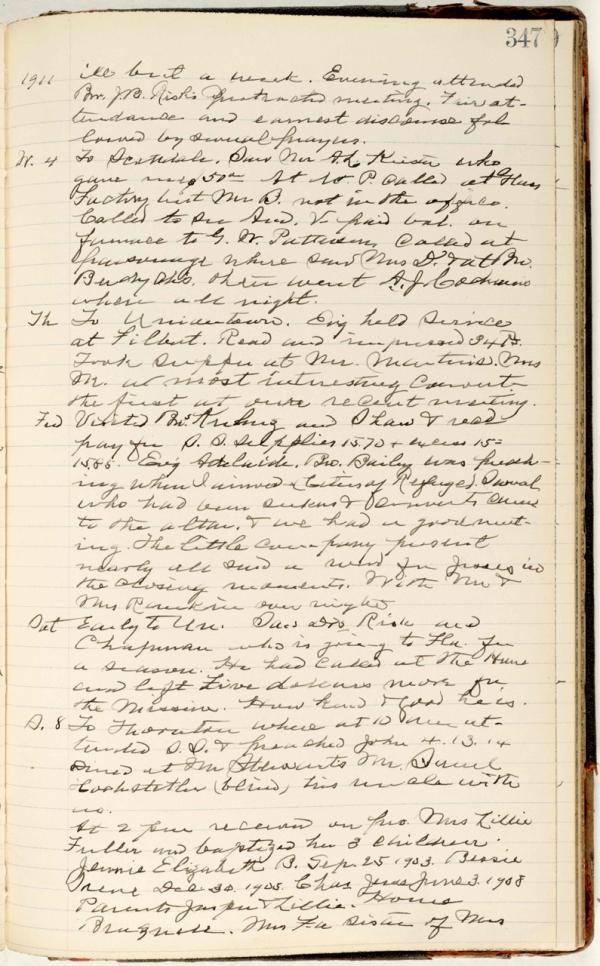 347
1911 ill but a week. Evening attended
Bro. J.B. Risk's Protracted meeting. Fair at-
tendance and earnest discourse fol
lowed by several prayers.
W. 4 To Scottdale. Saw Mr who
gave me 50 At Mt. P. called at Glass
Factory but Mr B. not in the office.
Called to see paid bal. on
furnace to G. W. Patterson, called at
Parsonage where saw Mrs D. & att
then went A. J. Cochrans
where all night.
Th To Uniontown. Ev'g held service
at Filbert. Read and
Took supper at Mr. Martins. Mrs
M. a most interesting convert
the first at our recent meeting.
Frid Visited Bro. and Shaw & recd
pay for S. S. supplies 15.70 + excess 15 =
15.85. Ev'g Adelaide. Bro. Baily was preach-
ing when I arrived (Cities of Refuge). Several
who had been seekers & converts came
to the altar, & we had a good meet-
ing. The little company present
nearly all said a word for Jesus in
the closing moments. With Mr &
Mrs Rankin over night.
Sat Early to Un. Saw Bro Risk and
Chapman who is going to Fla. for
a season. He had called at the Home
and left Five dollars more for
the Mission. How kind & good he is.
S. 8 To Thornton where at 10
tended S.S. & preached John 4. 13. 14
Dined at Mr Stewarts Mr. Samuel
Hochstetler (blind) his uncle with
us.
At 2 pm received on pro. Mrs Lillie
Fuller and baptized her 3 children:
Jennie Elizabeth B. Sep. 25 1903. Bessie
Irene Dec. 30. 1905. Chas. June 3. 1908
Parents Jasper & Lillie. Home
Mrs F. a sister of Mrs